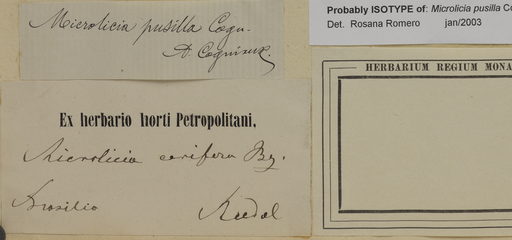 Microlicia pusilla Cogn.
A. Cogniaux.
Probably ISOTYPE of: Microlicia pusilla Co
Det. Rosana Romero jan/2003
HERBARIUM REGIUM MONA
Ex herbario horti Petropolitani.
Microlicia
Brasilia Riedel